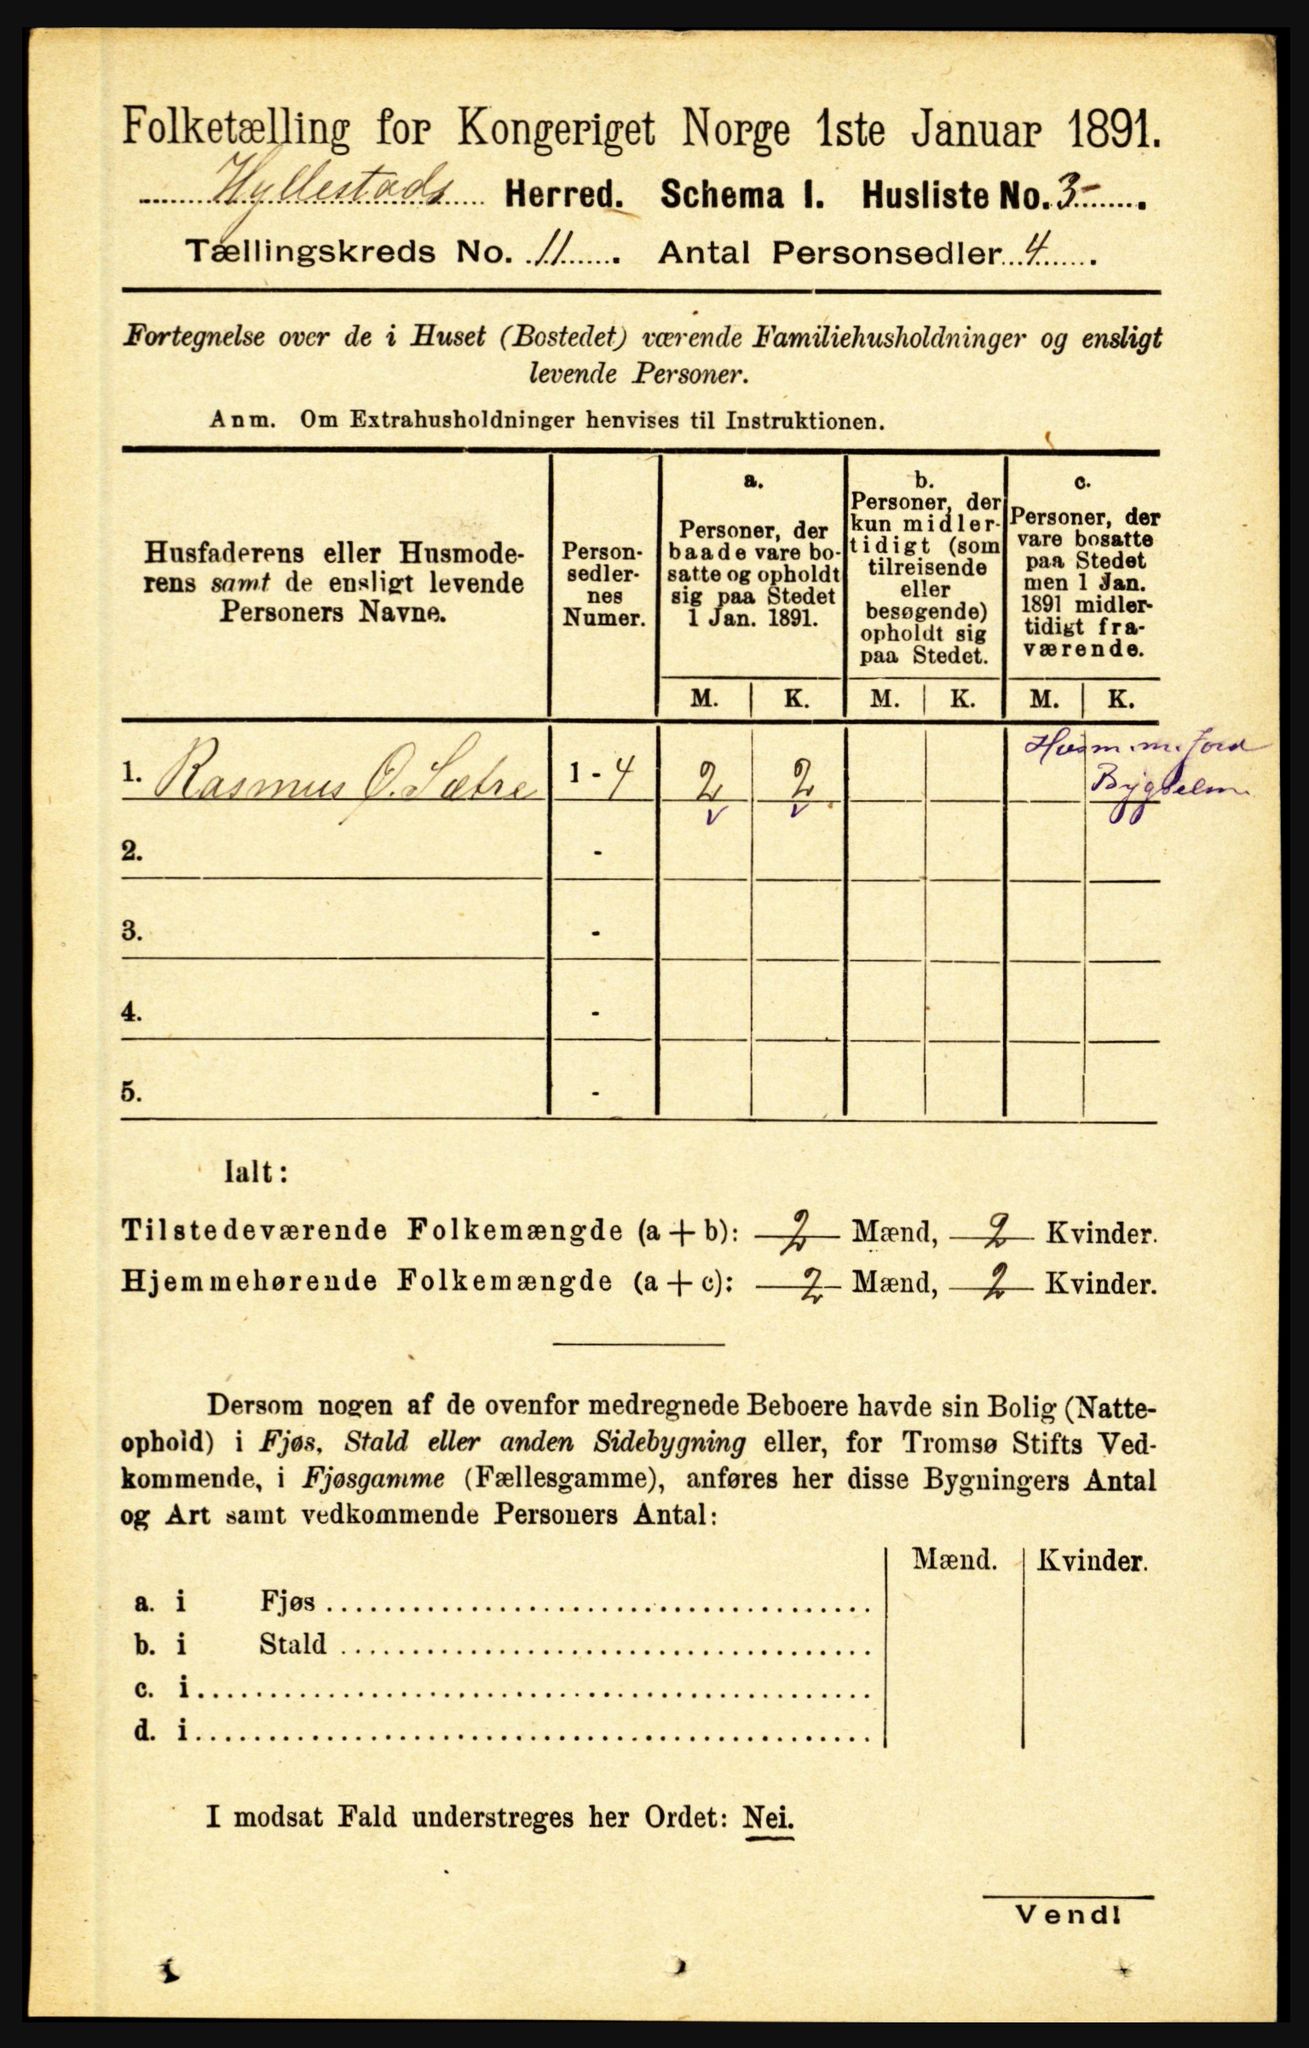 Folketælling for Kongeriget Norge 1ste Januar 1891.
Hyllestads Herred. Schema I. Husliste No. 3.
Tællingskreds No. 11. Antal Personsedler 4.
Fortegnelse over de i Huset (Bostedet) værende Familiehusholdninger og ensligt
levende Personer.
Anm. Om Extrahusholdninger henvises til Instruktionen.
Husfaderens eller Husmode-
rens samt de ensligt levende
Personers Navne.
Person-
sedler-
nes
Numer.
a.
Personer, der
baade vare bo-
satte og opholdt
sig paa Stedet
1 Jan. 1891.
b.
Personer, der
kun midler-
tidigt (som
tilreisende
eller
besøgende)
opholdt sig
paa Stedet.
c.
Personer, der
vare bosatte
paa Stedet
men 1 Jan.
1891 midler-
tidigt fra-
værende.
M. K. M. K. M. K.
Husm. m. Jord
1. Rasmus O. Sætre 1 - 4 2 2
2. -
3. -
4. -
5. -
Ialt:
Tilstedeværende Folkemængde (a + b): 2 Mænd, 2 Kvinder.
Hjemmehørende Folkemængde (a + c): 2 Mænd, 2 Kvinder.
Dersom nogen af de ovenfor medregnede Beboere havde sin Bolig (Natte-
ophold) i Fjøs, Stald eller anden Sidebygning eller, for Tromsø Stifts Ved-
kommende, i Fjøsgamme (Fællesgamme), anføres her disse Bygningers Antal
og Art samt vedkommende Personers Antal:
Mænd. Kvinder.
a. i Fjøs
b. i Stald
c. i
d. i
I modsat Fald understreges her Ordet: Nei.
Vend!